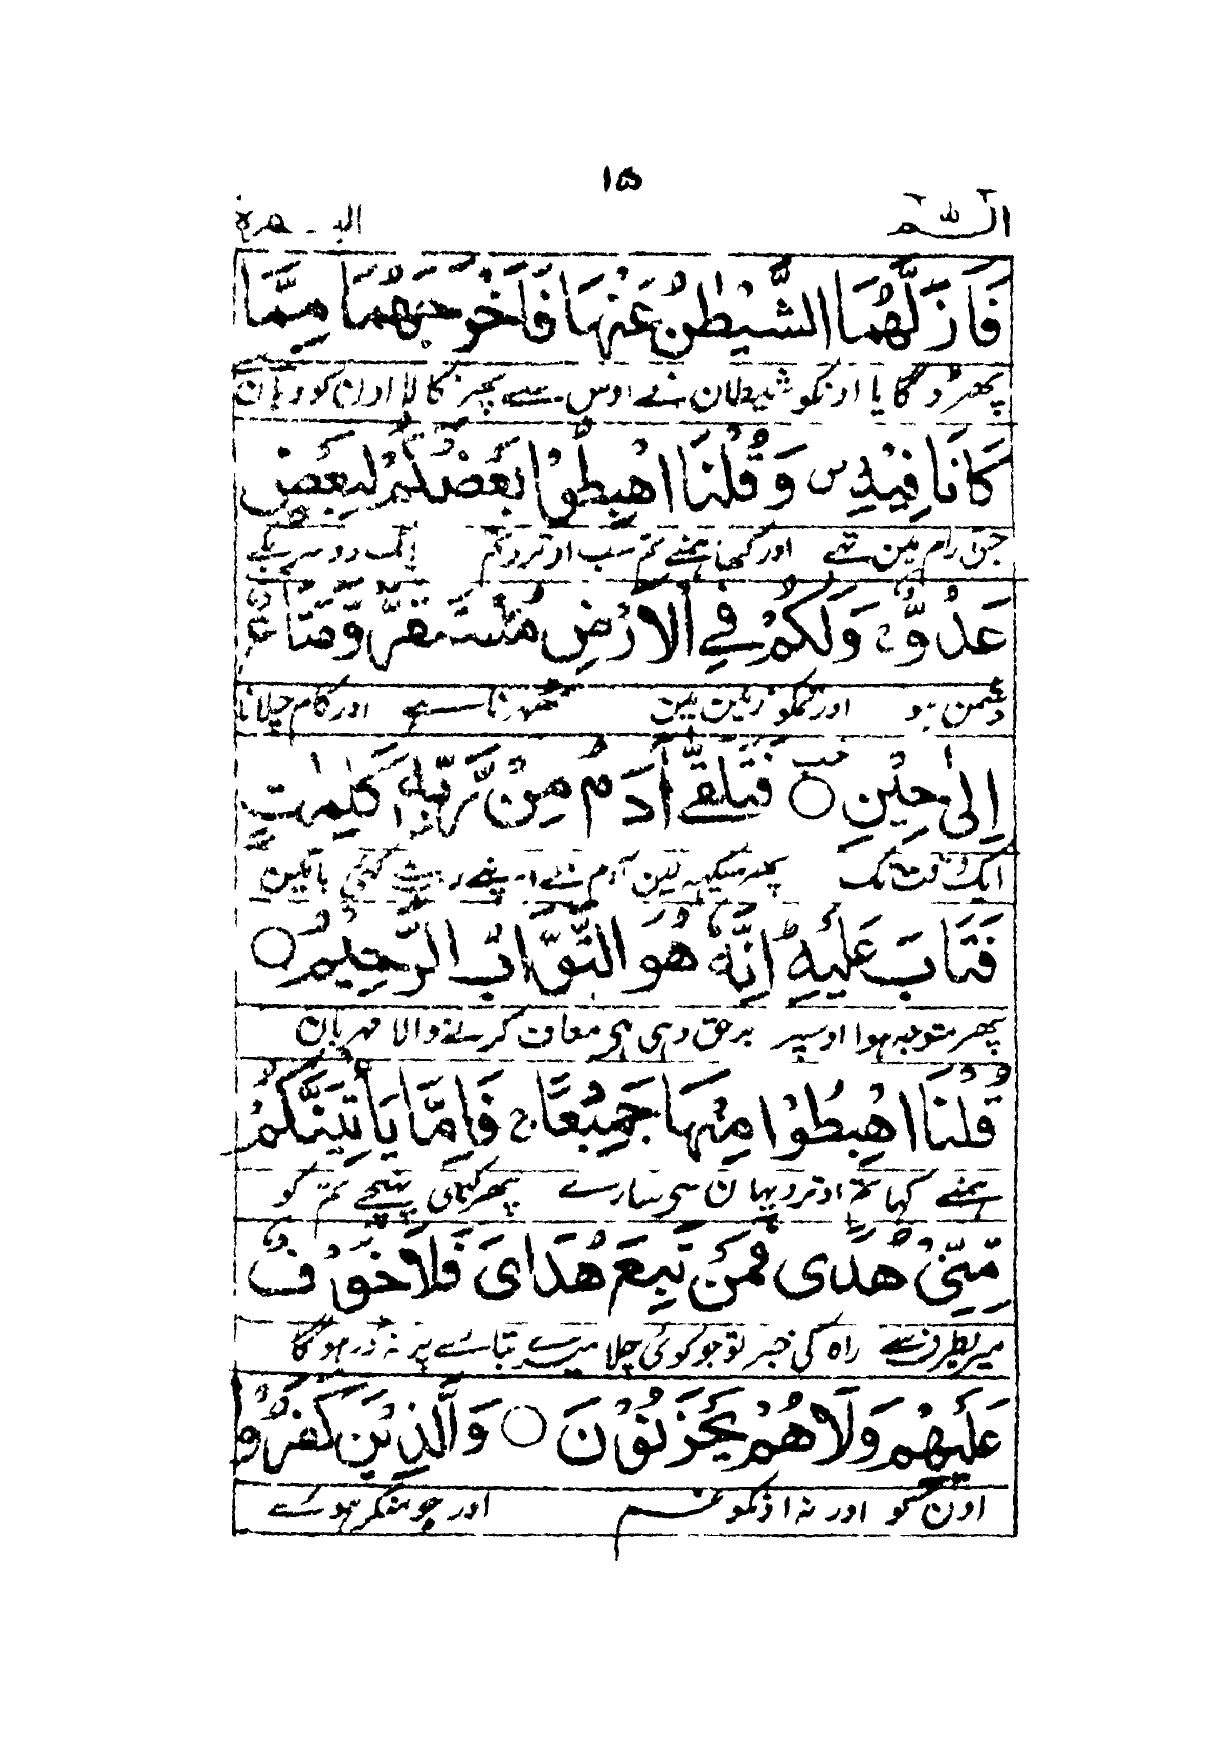 ۱۵
الٓـمّٓ البقرة
فَاَزَلَّهُمَا الشَّيْطٰنُ عَنْهَا فَاَخْرَجَهُمَا مِمَّا
پھر ڈگایا اونکو شیطان نے اوس سے پھر نکالا اون کو وہان سے
كَانَا فِيْهِ ص وَقُلْنَا اهْبِطُوْا بَعْضُكُمْ لِبَعْضٍ
جس آرام مین تھے اور کہا ہمنے تم سب اوترو تم ایک دوسریکے
عَدُوٌّ ج وَلَكُمْ فِي الْاَرْضِ مُسْتَقَرٌّ وَّمَتَاعٌ
دشمن ہو اور تمکو زمین مین ٹھہرنا ہے اور کام چلانا
اِلٰى حِيْنٍ ○ فَتَلَقّٰٓى اٰدَمُ مِنْ رَّبِّهٖ كَلِمٰتٍ
ایک وقت تک پھر سیکہہ لین آدم نے اپنے رب سے کئی باتین
فَتَابَ عَلَيْهِ ط اِنَّهٗ هُوَ التَّوَّابُ الرَّحِيْمُ ○
پھر متوجہ ہوا اوسپر برحق وہی ہی معاف کرنے والا مہربان
قُلْنَا اهْبِطُوْا مِنْهَا جَمِيْعًا ج فَاِمَّا يَاْتِيَنَّكُمْ
ہمنے کہا تم اوترو یہان سی سارے پھر کبھی پہنچے تم کو
مِّنِّيْ هُدًى فَمَنْ تَبِعَ هُدَايَ فَلَا خَوْفٌ
میریطرف سے راہ کی خبر تو جو کوئی چلا میرے بتائے پر نہ ڈر ہوگا
عَلَيْهِمْ وَلَا هُمْ يَحْزَنُوْنَ ○ وَالَّذِيْنَ كَفَرُوْا
اون کو اور نہ اونکو غم اور جو منکر ہوئے